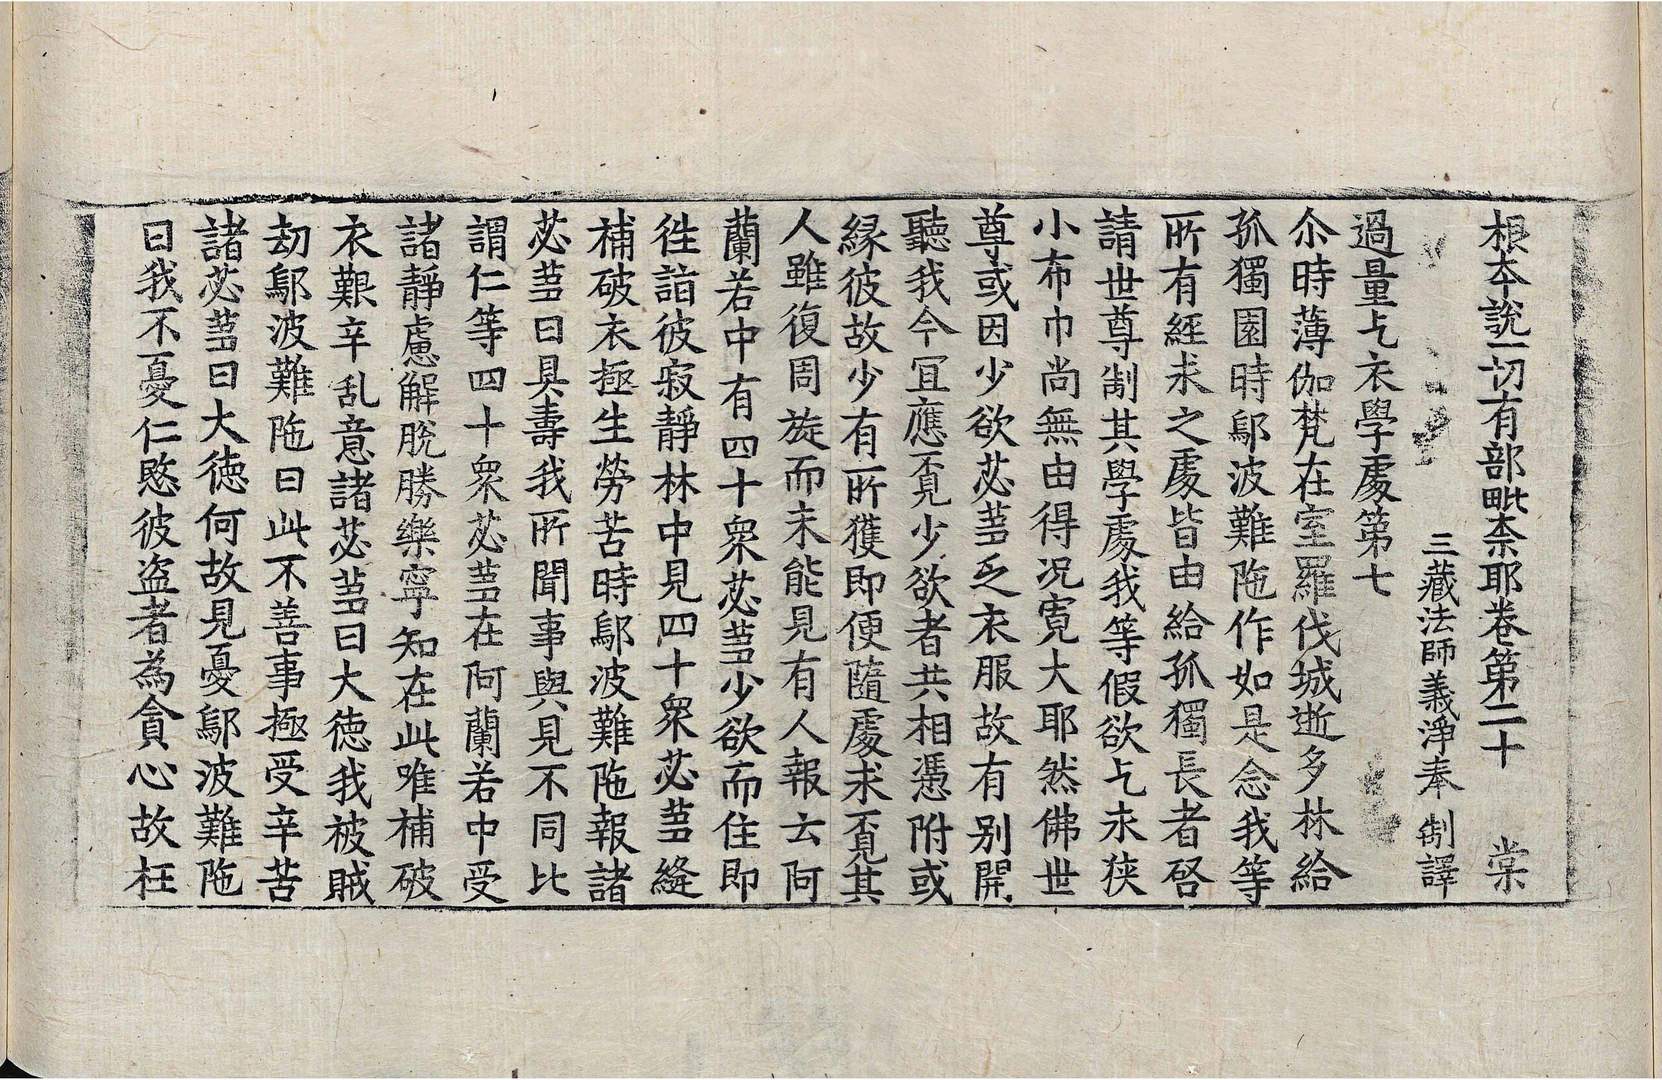 根本說一切有部毗柰耶卷第二十 棠
三藏法師義淨奉 制譯
過量乞衣學處第七
尒時薄伽梵在室羅伐城逝多林給
孤獨園時鄔波難陁作如是念我等
所有經求之處皆由給孤獨長者啓
請世尊制其學處我等假欲乞求狹
小布巾尚無由得况寬大耶然佛世
尊或因少欲苾芻乏衣服故有別開
聽我今冝應覔少欲者共相憑附或
緣彼故少有所獲即便隨處求覔其
人雖復周旋而未能見有人報云阿
蘭若中有四十衆苾芻少欲而住即
徃詣彼寂靜林中見四十衆苾芻縫
補破衣極生勞苦時鄔波難陁報諸
苾芻曰具壽我所聞事與見不同比
謂仁等四十衆苾芻在阿蘭若中受
諸靜慮解脫勝樂寧知在此唯補破
衣艱辛乱意諸苾芻曰大德我被賊
刼鄔波難陁曰此不善事極受辛苦
諸苾芻曰大德何故見憂鄔波難陁
曰我不憂仁愍彼盜者為貪心故枉